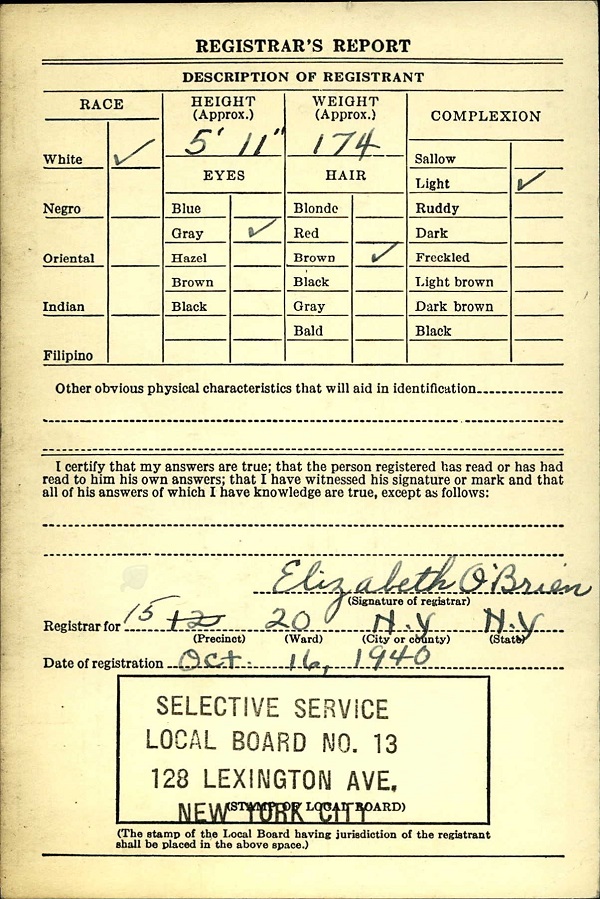 REGISTRAR'S REPORT
DESCRIPTION OF REGISTRANT
RACE HEIGHT (Approx.) WEIGHT (Approx.) COMPLEXION
5' 11" 174
White ✓ Sallow
EYES HAIR Light ✓
Negro Blue Blonde Ruddy
Gray ✓ Red Dark
Oriental Hazel Brown ✓ Freckled
Brown Black Light brown
Indian Black Gray Dark brown
Bald Black
Filipino
Other obvious physical characteristics that will aid in identification
I certify that my answers are true; that the person registered has read or has had
read to him his own answers; that I have witnessed his signature or mark and that
all of his answers of which I have knowledge are true, except as follows:
Elizabeth O'Brien
(Signature of registrar)
Registrar for 15 12 20 N.Y N.Y
(Precinct) (Ward) (City or county) (State)
Date of registration Oct. 16, 1940
SELECTIVE SERVICE
LOCAL BOARD NO. 13
128 LEXINGTON AVE.
NEW YORK CITY
(STAMP OF LOCAL BOARD)
(The stamp of the Local Board having jurisdiction of the registrant
shall be placed in the above space.)